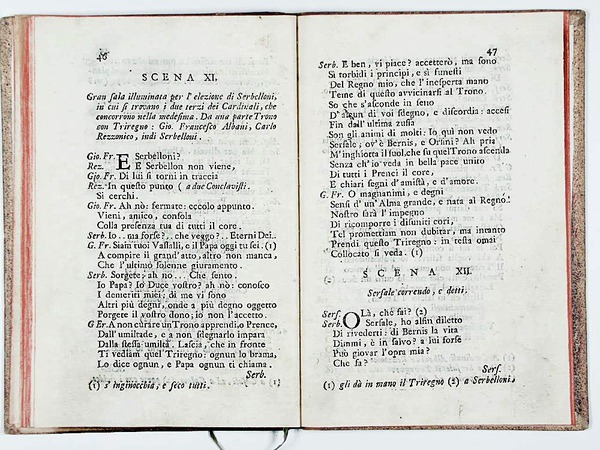 46
SCENA XI.
Gran sala illuminata per l'elezione di Serbelloni,
in cui si trovano i due terzi dei Cardinali, che
concorrono nella medesima. Da una parte Trono
con Triregno: Gio. Francesco Albani, Carlo
Rezzonico, indi Serbelloni.
Gio. Fr. E Serbelloni?
Rez. E Serbellon non viene,
Gio. Fr. Di lui si torni in traccia
Rez. In questo punto ( a due Conclavisti.
Si cerchi.
Gio. Fr. Ah nò: fermate: eccolo appunto.
Vieni, amico, consola
Colla presenza tua di tutti il core.
Serb. Io.. ma forse?.. che veggo?.. Eterni Dei..
G. Fr. Siam tuoi Vassalli, e il Papa oggi tu sei. (1)
A compire il grand'atto, altro non manca,
Che l'ultimo solenne giuramento.
Serb. Sorgete; ah nò... Che sento.
Io Papa? Io Duce vostro? ah nò: conosco
I demeriti miei: di me vi sono
Altri più degni, onde a più degno oggetto
Porgete il vostro dono; io non l'accetto.
G Fr. A non curare un Trono apprendi o Prence,
Dall'umiltade, e a non sdegnarlo impara
Dalla stessa umiltà. Lascia, che in fronte
Ti vediam quel Triregno: ognun lo brama,
Lo dice ognun, e Papa ognun ti chiama.
Serb.
(1) s'inginocchia, e seco tutti.
47
Serb. E ben, vi piace? accetterò, ma sono
Sì torbidi i principi, e sì funesti
Del Regno mio, che l'inesperta mano
Teme di questo avvicinarsi al Trono.
So che s'asconde in seno
D'alcun di voi sdegno, e discordia: accesi
Fin dall'ultima zuffa
Son gli animi di molti: Io quì non vedo
Sersale, ov'è Bernis, e Orsini? Ah pria
M'inghiotta il suol, che su quel Trono ascenda
Senza ch'io veda in bella pace unito
Di tutti i Prenci il core,
E chiari segni d'amistà, e d'amore.
G. Fr. O magnanimi, e degni
Sensi d'un'Alma grande, e nata al Regno.
Nostro sarà l'impegno
Di ricomporre i disuniti cori,
Tel promettiam non dubitar, ma intanto
Prendi questo Triregno: in testa omai
Collocato si veda. (1)
SCENA XII.
Sersale correndo, e detti.
Sers. OLà, chè fai? (2)
Serb. Sersale, ho alfin diletto
Di rivederti: di Bernis la vita
Dimmi, è in salvo? a lui forse
Può giovar l'opra mia?
Che fa?
Sers.
(1) gli dà in mano il Triregno (2) a Serbelloni.